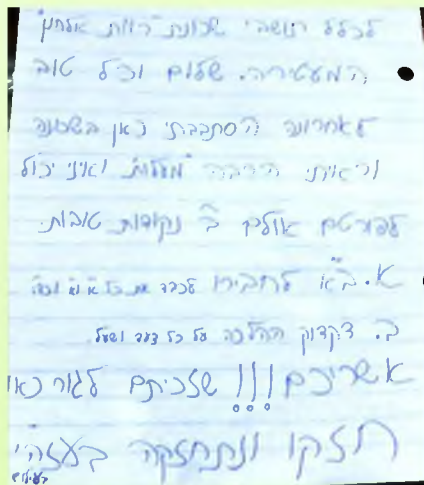 לכלל תושבי שכונת "רוות אלחנן"
המעטירה. שלום וכל טוב
לאחרונה הסתבבתי כאן בשכונה
וראיתי הרבה "מעלות" ואיני יכול
לפורטם אולם ב' נקודות טובות.
א. ב"א לחבירו לכבד את כל א' וא'
ב. דקדוק ההלכה על כל צעד ושעל
אשריכם!!! שזכיתם לגור כאן
חזקו ונתחזקה בעזהי